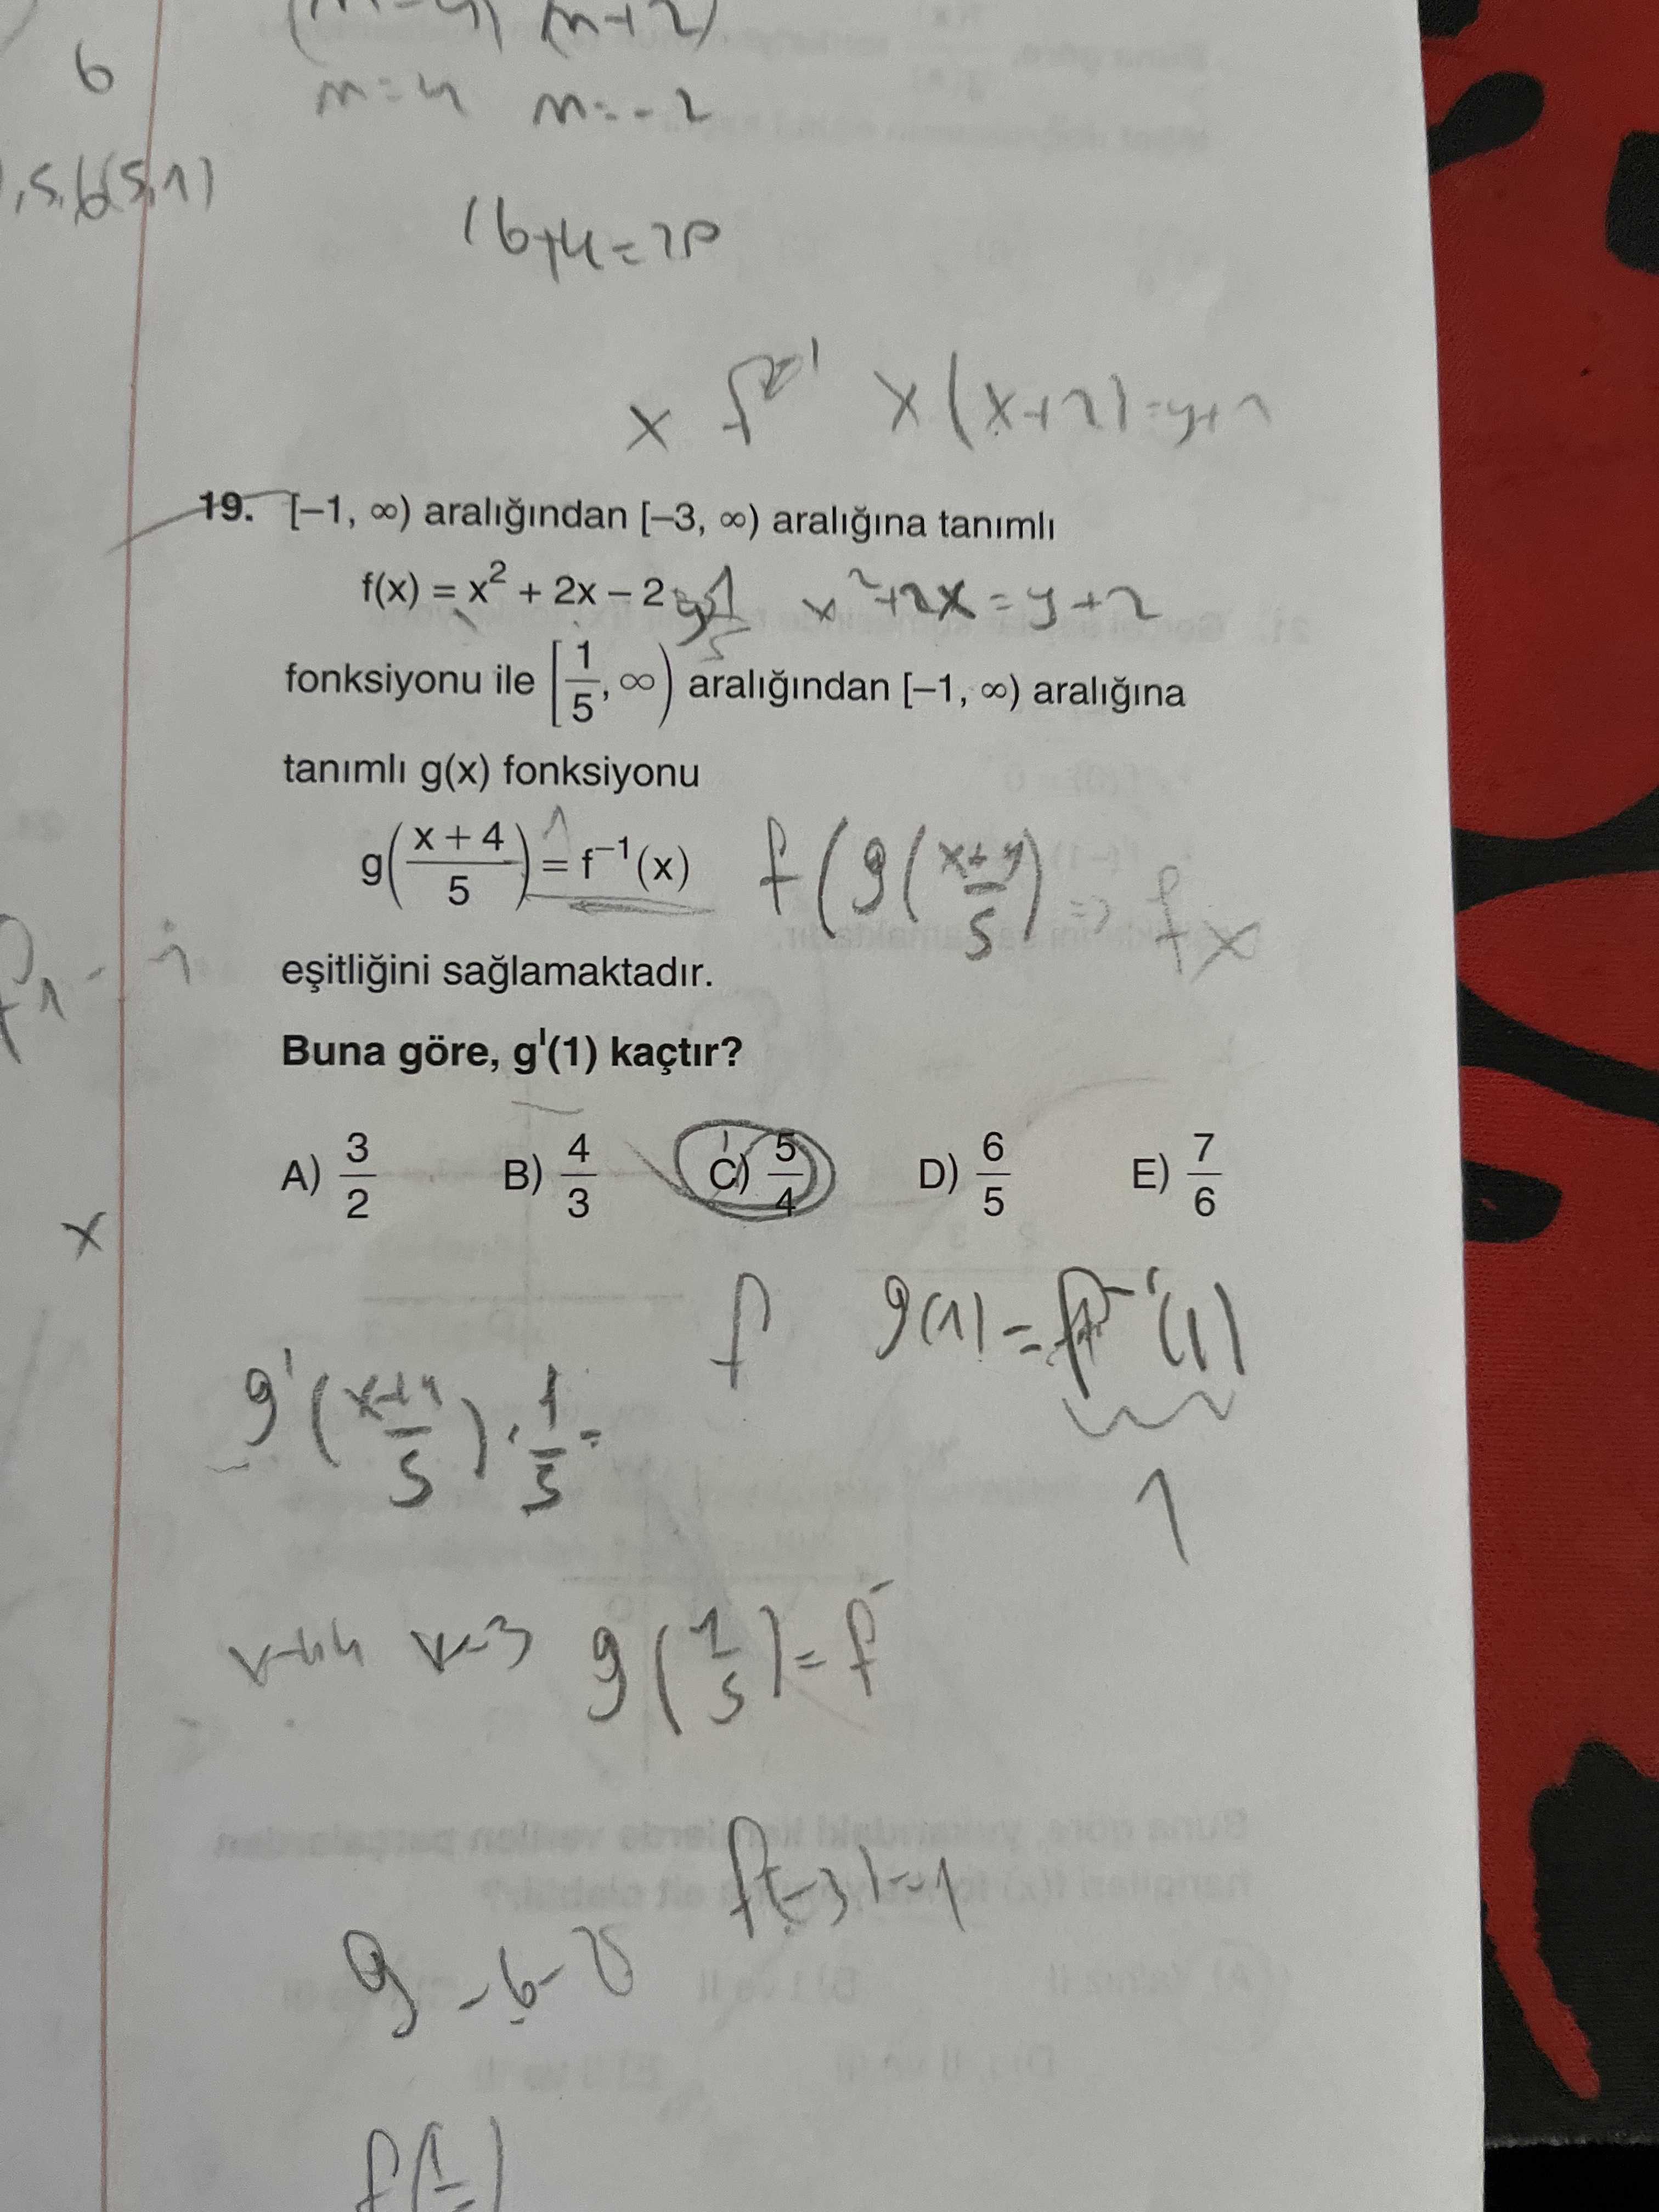 6
(m-4) (m+2)
m=4 m=-2
,5,6(5,1)
16+4=20
x f⁻¹ x(x+2)=y+2
19. [–1, ∞) aralığından [–3, ∞) aralığına tanımlı
f(x) = x² + 2x – 2 x²+2x=y+2
fonksiyonu ile [1/5, ∞) aralığından [–1, ∞) aralığına
tanımlı g(x) fonksiyonu
g((x + 4)/5) = f⁻¹(x) f(g((x+4)/5) = fx
eşitliğini sağlamaktadır.
Buna göre, g'(1) kaçtır?
A) 3/2 B) 4/3 C) 5/4 D) 6/5 E) 7/6
x
f g(1)=f⁻¹(1)
g'((x+4)/5).1/5=
1
g(1/5)=f⁻
f(-3)=1
9-6-2